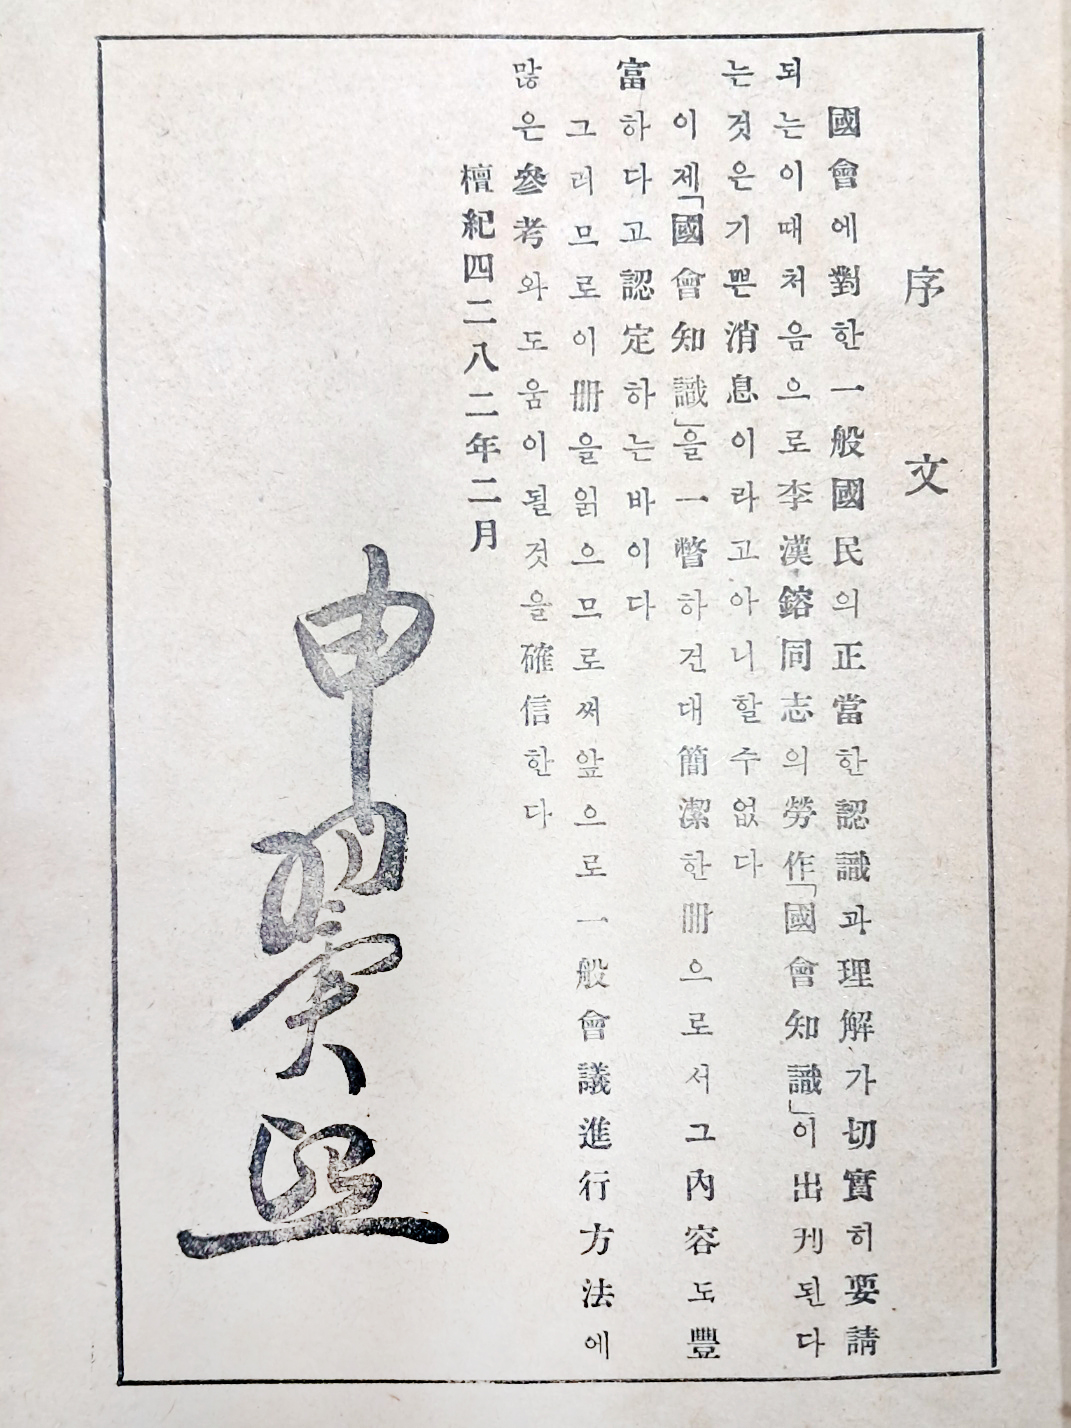 序文
國會에對한一般國民의正當한認識과理解가切實히要請
되는이때처음으로李漢鎔同志의勞作「國會知識」이出刊된다
는것은기쁜消息이라고아니할수없다
이제「國會知識」을一瞥하건대簡潔한冊으로서그內容도豐
富하다고認定하는바이다
그러므로이冊을읽으므로써앞으로一般會議進行方法에
많은參考와도움이될것을確信한다
檀紀四二八二年二月
申翼熙